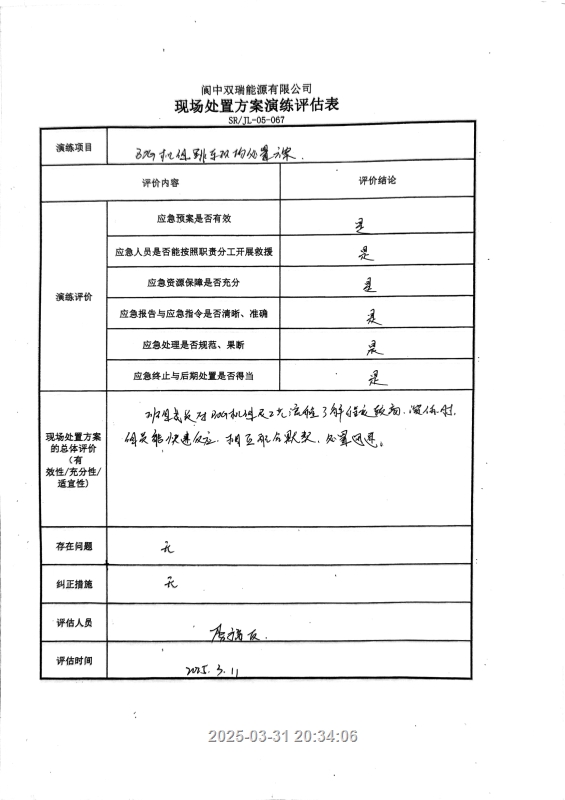 阆中双瑞能源有限公司
现场处置方案演练评估表
SR/JL-05-067
演练项目
BOG机组跳车现场处置方案.
评价内容 评价结论
演练评价
应急预案是否有效 是
应急人员是否能按照职责分工开展救援 是
应急资源保障是否充分 是
应急报告与应急指令是否清晰、准确 是
应急处理是否规范、果断 是
应急终止与后期处置是否得当 是
现场处置方案
的总体评价
(有
效性/充分性/
适宜性)
班组成员对BOG机组及工艺流程了解
组员能快速反应, 相互配合默契, 处置迅速。
存在问题 无
纠正措施 无
评估人员
评估时间 2025.3.11
2025-03-31 20:34:06